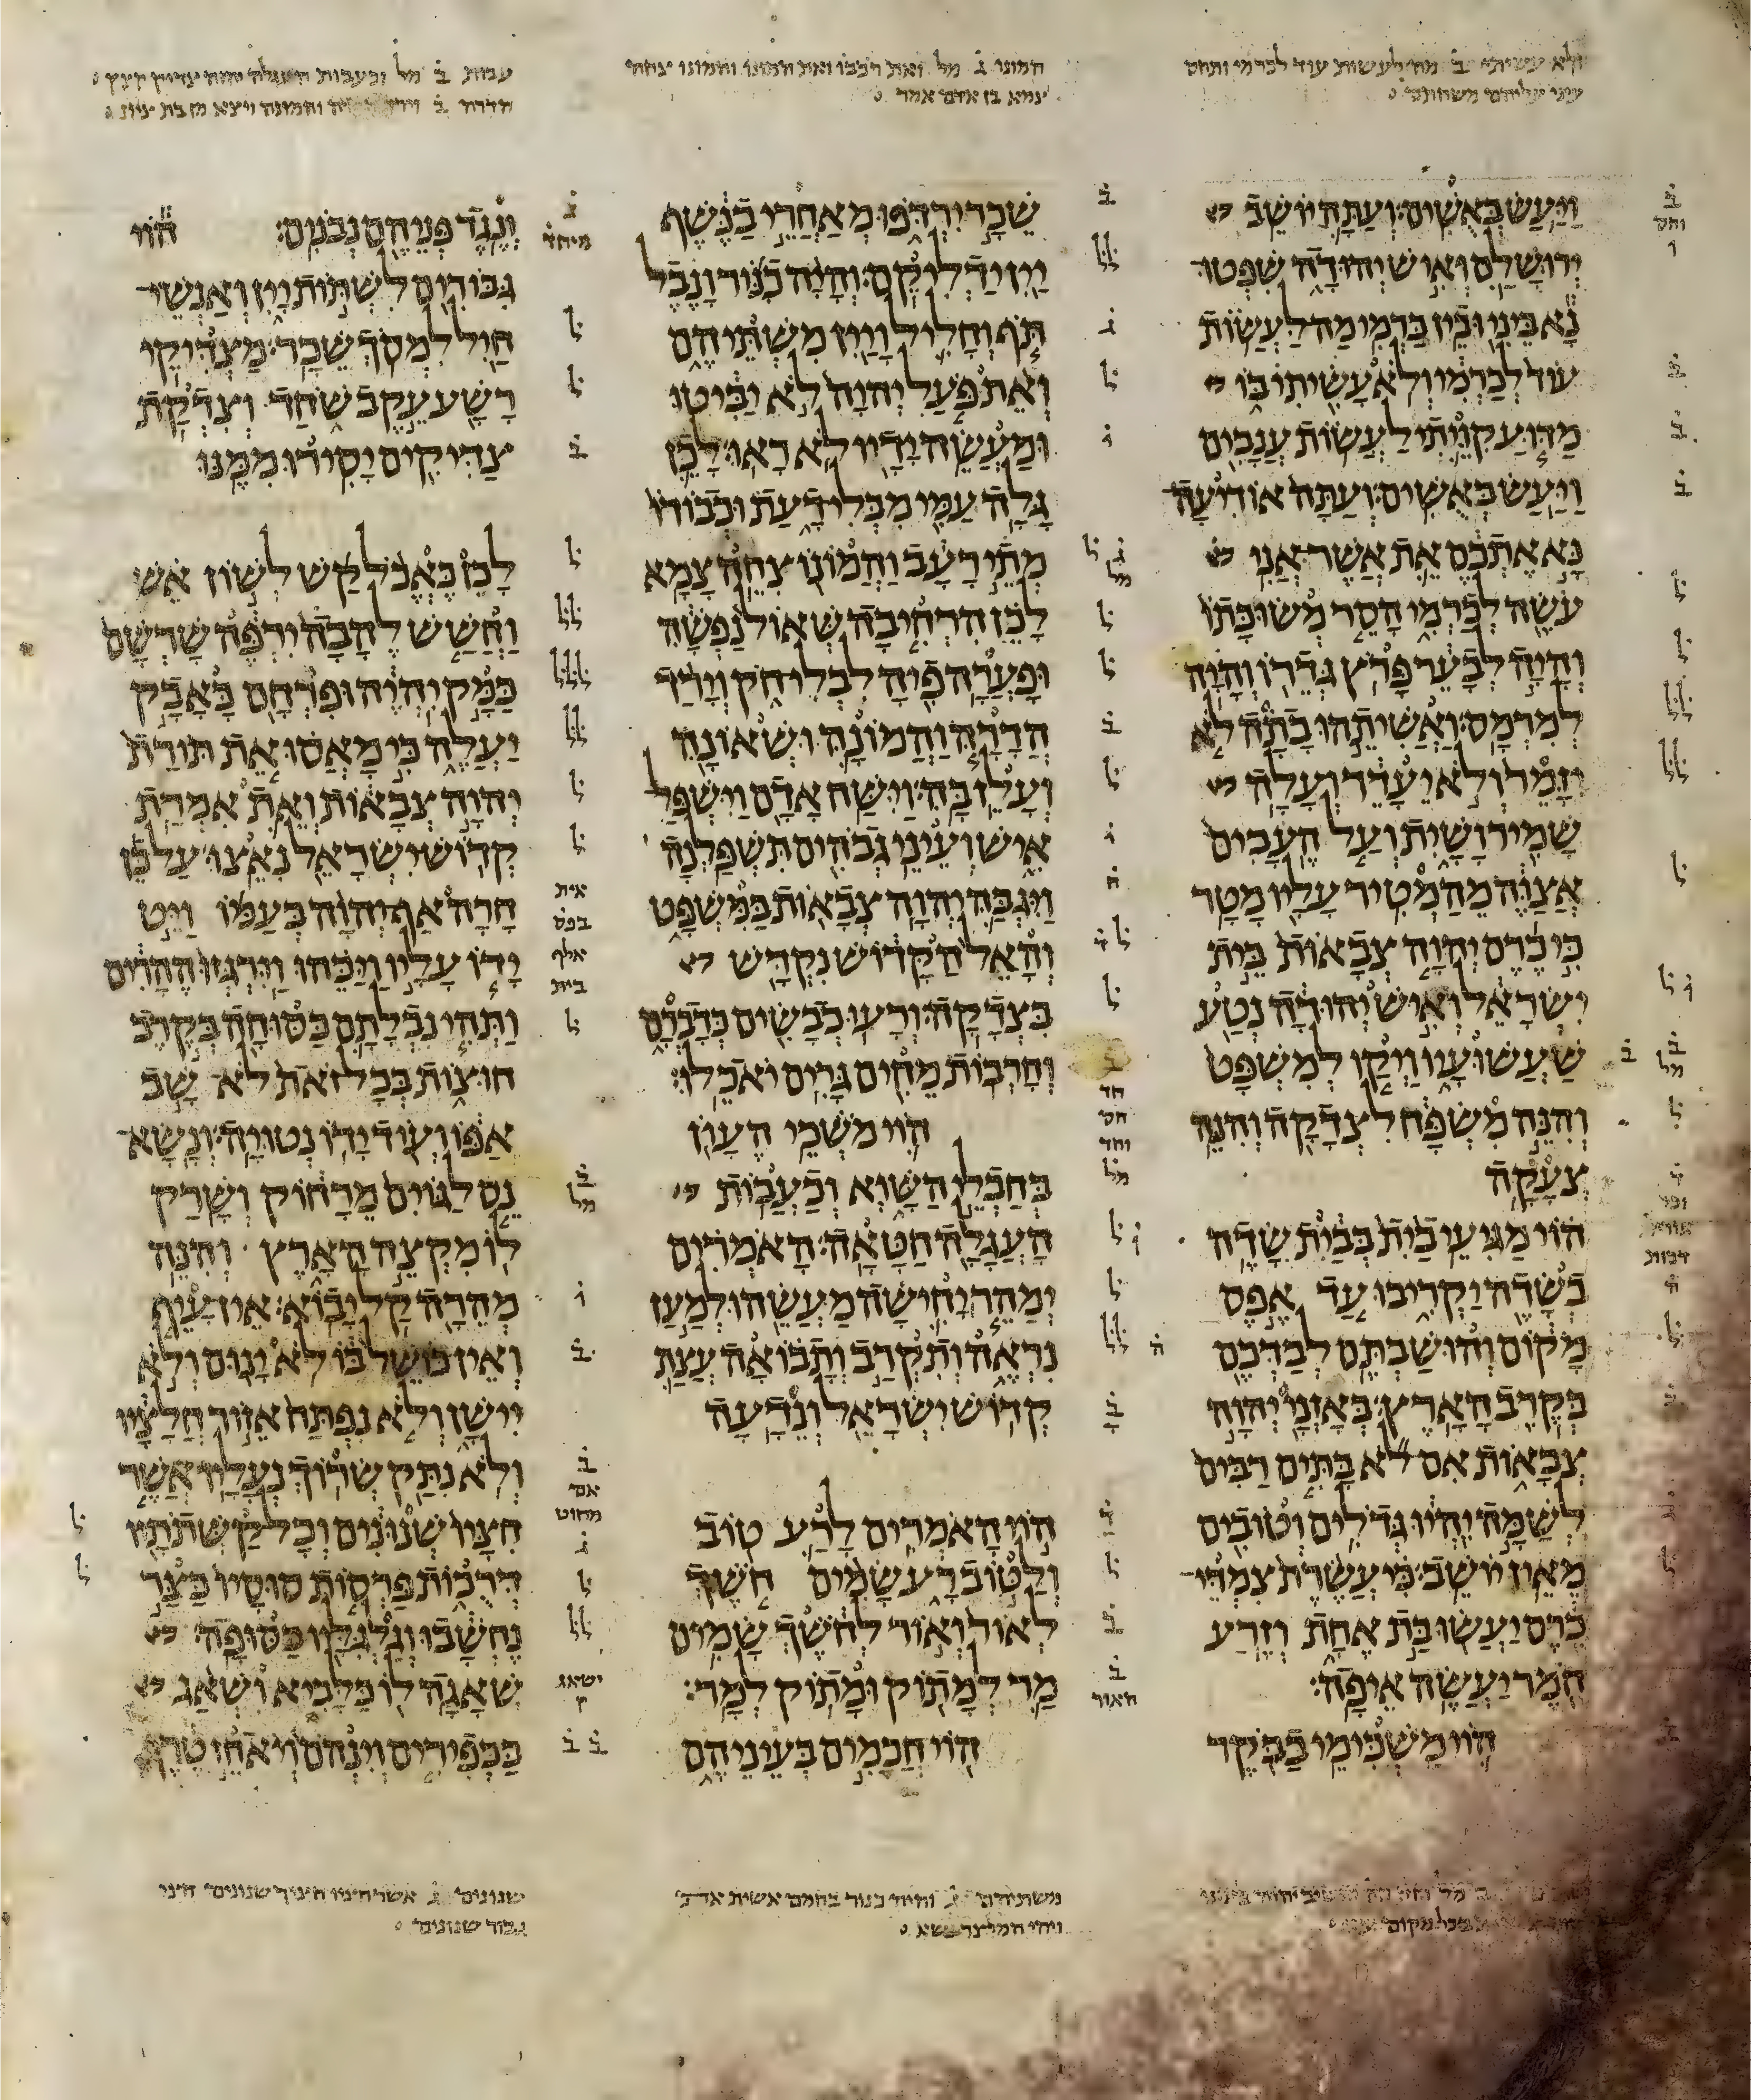 ולא עשיתי ב מה לעשות עוד לכרמי ותחס
עיני עליהם משחתם
המונו ג מל ואת רכבו ואת המונו והמונו צחה
צמא בן אדם אמר
עבות ב מל וכעבות העגלה
הדרה ב וירד והמונה ויצא מן בת ציון
וַיַּעַשׂ בְּאֻשִׁים׃ וְעַתָּה יוֹשֵׁב
יְרוּשָׁלִַם וְאִישׁ יְהוּדָה שִׁפְטוּ
נָא בֵּינִי וּבֵין כַּרְמִי׃ מַה לַּעֲשׂוֹת
עוֹד לְכַרְמִי וְלֹא עָשִׂיתִי בּוֹ
מַדּוּעַ קִוֵּיתִי לַעֲשׂוֹת עֲנָבִים
וַיַּעַשׂ בְּאֻשִׁים׃ וְעַתָּה אוֹדִיעָה
נָּא אֶתְכֶם אֵת אֲשֶׁר אֲנִי
עֹשֶׂה לְכַרְמִי הָסֵר מְשׂוּכָּתוֹ
וְהָיָה לְבָעֵר פָּרֹץ גְּדֵרוֹ וְהָיָה
לְמִרְמָס׃ וַאֲשִׁיתֵהוּ בָתָה לֹא
יִזָּמֵר וְלֹא יֵעָדֵר וְעָלָה
שָׁמִיר וָשָׁיִת וְעַל הֶעָבִים
אֲצַוֶּה מֵהַמְטִיר עָלָיו מָטָר
כִּי כֶרֶם יְהוָה צְבָאוֹת בֵּית
יִשְׂרָאֵל וְאִישׁ יְהוּדָה נְטַע
שַׁעֲשׁוּעָיו וַיְקַו לְמִשְׁפָּט
וְהִנֵּה מִשְׂפָּח לִצְדָקָה וְהִנֵּה
צְעָקָה
הוֹי מַגִּיעֵי בַיִת בְּבַיִת שָׂדֶה
בְשָׂדֶה יַקְרִיבוּ עַד אֶפֶס
מָקוֹם וְהוּשַׁבְתֶּם לְבַדְּכֶם
בְּקֶרֶב הָאָרֶץ׃ בְּאָזְנָי יְהוָה
צְבָאוֹת אִם לֹא בָּתִּים רַבִּים
לְשַׁמָּה יִהְיוּ גְּדֹלִים וְטוֹבִים
מֵאֵין יוֹשֵׁב׃ כִּי עֲשֶׂרֶת צִמְדֵּי
כֶרֶם יַעֲשׂוּ בַּת אֶחָת וְזֶרַע
חֹמֶר יַעֲשֶׂה אֵיפָה׃
הוֹי מַשְׁכִּימֵי בַבֹּקֶר
שֵׁכָר יִרְדֹּפוּ מְאַחֲרֵי בַנֶּשֶׁף
יַיִן יַדְלִיקֵם׃ וְהָיָה כִנּוֹר וָנֶבֶל
תֹּף וְחָלִיל וָיַיִן מִשְׁתֵּיהֶם
וְאֵת פֹּעַל יְהוָה לֹא יַבִּיטוּ
וּמַעֲשֵׂה יָדָיו לֹא רָאוּ׃ לָכֵן
גָּלָה עַמִּי מִבְּלִי דָעַת וּכְבוֹדוֹ
מְתֵי רָעָב וַהֲמוֹנוֹ צִחֵה צָמָא
לָכֵן הִרְחִיבָה שְּׁאוֹל נַפְשָׁהּ
וּפָעֲרָה פִיהָ לִבְלִי חֹק וְיָרַד
הֲדָרָהּ וַהֲמוֹנָהּ וּשְׁאוֹנָהּ
וְעָלֵז בָּהּ׃ וַיִּשַּׁח אָדָם וַיִּשְׁפַּל
אִישׁ וְעֵינֵי גְבֹהִים תִּשְׁפַּלְנָה
וַיִּגְבַּהּ יְהוָה צְבָאוֹת בַּמִּשְׁפָּט
וְהָאֵל הַקָּדוֹשׁ נִקְדָּשׁ
בִּצְדָקָה׃ וְרָעוּ כְבָשִׂים כְּדָבְרָם
וְחָרְבוֹת מֵחִים גָּרִים יֹאכֵלוּ׃
הוֹי מֹשְׁכֵי הֶעָוֹן
בְּחַבְלֵי הַשָּׁוְא וְכַעֲבוֹת
הָעֲגָלָה חַטָּאָה׃ הָאֹמְרִים
יְמַהֵר יָחִישָׁה מַעֲשֵׂהוּ לְמַעַן
נִרְאֶה וְתִקְרַב וְתָבוֹאָה עֲצַת
קְדוֹשׁ יִשְׂרָאֵל וְנֵדָעָה
הוֹי הָאֹמְרִים לָרַע טוֹב
וְלַטּוֹב רָע שָׂמִים חֹשֶׁךְ
לְאוֹר וְאוֹר לְחֹשֶׁךְ שָׂמִים
מַר לְמָתוֹק וּמָתוֹק לְמָר׃
הוֹי חֲכָמִים בְּעֵינֵיהֶם
וְנֶגֶד פְּנֵיהֶם נְבֹנִים׃ הוֹי
גִּבּוֹרִים לִשְׁתּוֹת יָיִן וְאַנְשֵׁי
חַיִל לִמְסֹךְ שֵׁכָר׃ מַצְדִּיקֵי
רָשָׁע עֵקֶב שֹׁחַד וְצִדְקַת
צַדִּיקִים יָסִירוּ מִמֶּנּוּ
לָכֵן כֶּאֱכֹל קַשׁ לְשׁוֹן אֵשׁ
וַחֲשַׁשׁ לֶהָבָה יִרְפֶּה שָׁרְשָׁם
כַּמָּק יִהְיֶה וּפִרְחָם כָּאָבָק
יַעֲלֶה כִּי מָאֲסוּ אֵת תּוֹרַת
יְהוָה צְבָאוֹת וְאֵת אִמְרַת
קְדוֹשׁ יִשְׂרָאֵל נִאֵצוּ׃ עַל כֵּן
חָרָה אַף יְהוָה בְּעַמּוֹ וַיֵּט
יָדוֹ עָלָיו וַיַּכֵּהוּ וַיִּרְגְּזוּ הֶהָרִים
וַתְּהִי נִבְלָתָם כַּסּוּחָה בְּקֶרֶב
חוּצוֹת בְּכָל זֹאת לֹא שָׁב
אַפּוֹ וְעוֹד יָדוֹ נְטוּיָה׃ וְנָשָׂא
נֵס לַגּוֹיִם מֵרָחוֹק וְשָׁרַק
לוֹ מִקְצֵה הָאָרֶץ וְהִנֵּה
מְהֵרָה קַל יָבוֹא׃ אֵין עָיֵף
וְאֵין כּוֹשֵׁל בּוֹ לֹא יָנוּם וְלֹא
יִישָׁן וְלֹא נִפְתַּח אֵזוֹר חֲלָצָיו
וְלֹא נִתַּק שְׂרוֹךְ נְעָלָיו׃ אֲשֶׁר
חִצָּיו שְׁנוּנִים וְכָל קַשְּׁתֹתָיו
דְּרֻכוֹת פַּרְסוֹת סוּסָיו כַּצַּר
נֶחְשָׁבוּ וְגַלְגִּלָּיו כַּסּוּפָה׃
שְׁאָגָה לוֹ כַּלָּבִיא וְשָׁאַג
כַּכְּפִירִים וְיִנְהֹם וְיֹאחֵז טֶרֶף
משתיהם ג והיה כנור בחמם אשית את
ויהי המלצר נשא
שנונים ג אשר חציו חציך שנונים חצי
גבור שנונים